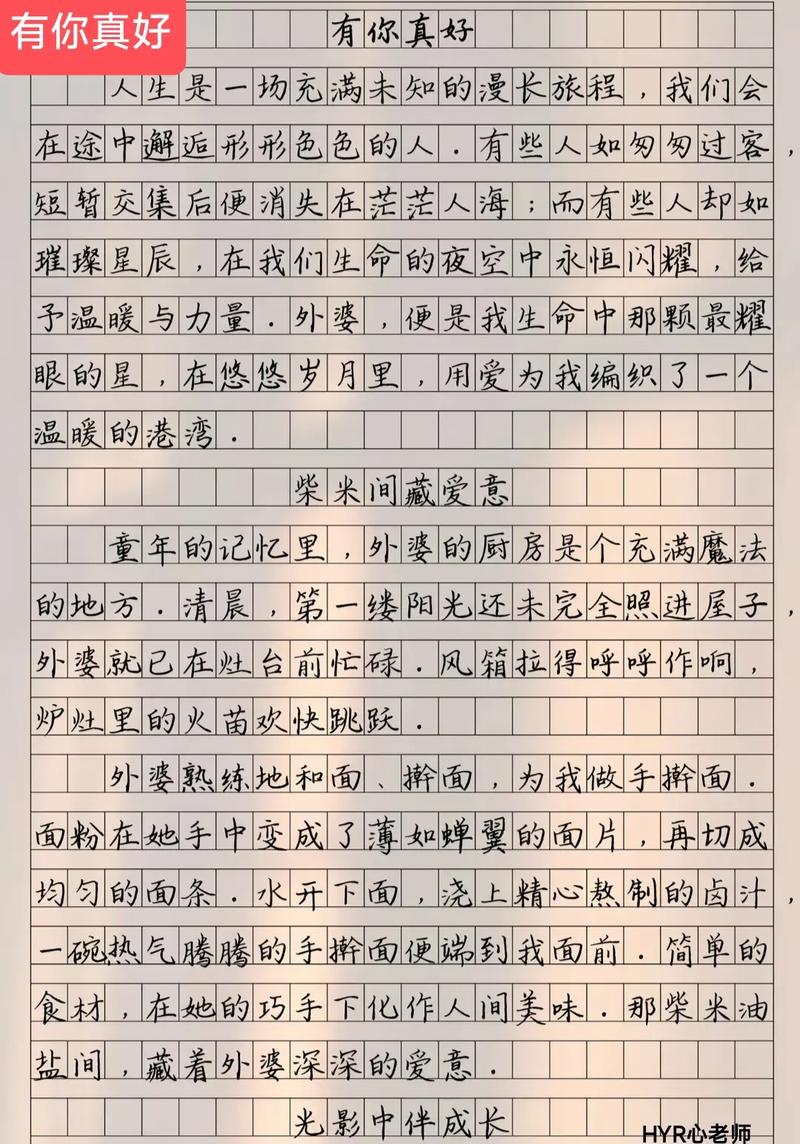 有你真好
有你真好
人生是一场充满未知的漫长旅程,我们会
在途中邂逅形形色色的人.有些人如匆匆过客,
短暂交集后便消失在茫茫人海;而有些人却如
璀璨星辰,在我们生命的夜空中永恒闪耀,给
予温暖与力量.外婆,便是我生命中那颗最耀
眼的星,在悠悠岁月里,用爱为我编织了一个
温暖的港湾.
柴米间藏爱意
童年的记忆里,外婆的厨房是个充满魔法
的地方.清晨,第一缕阳光还未完全照进屋子,
外婆就已在灶台前忙碌.风箱拉得呼呼作响,
炉灶里的火苗欢快跳跃.
外婆熟练地和面、擀面,为我做手擀面.
面粉在她手中变成了薄如蝉翼的面片,再切成
均匀的面条.水开下面,浇上精心熬制的卤汁,
一碗热气腾腾的手擀面便端到我面前.简单的
食材,在她的巧手下化作人间美味.那柴米油
盐间,藏着外婆深深的爱意.
光影中伴成长
HYR心老师